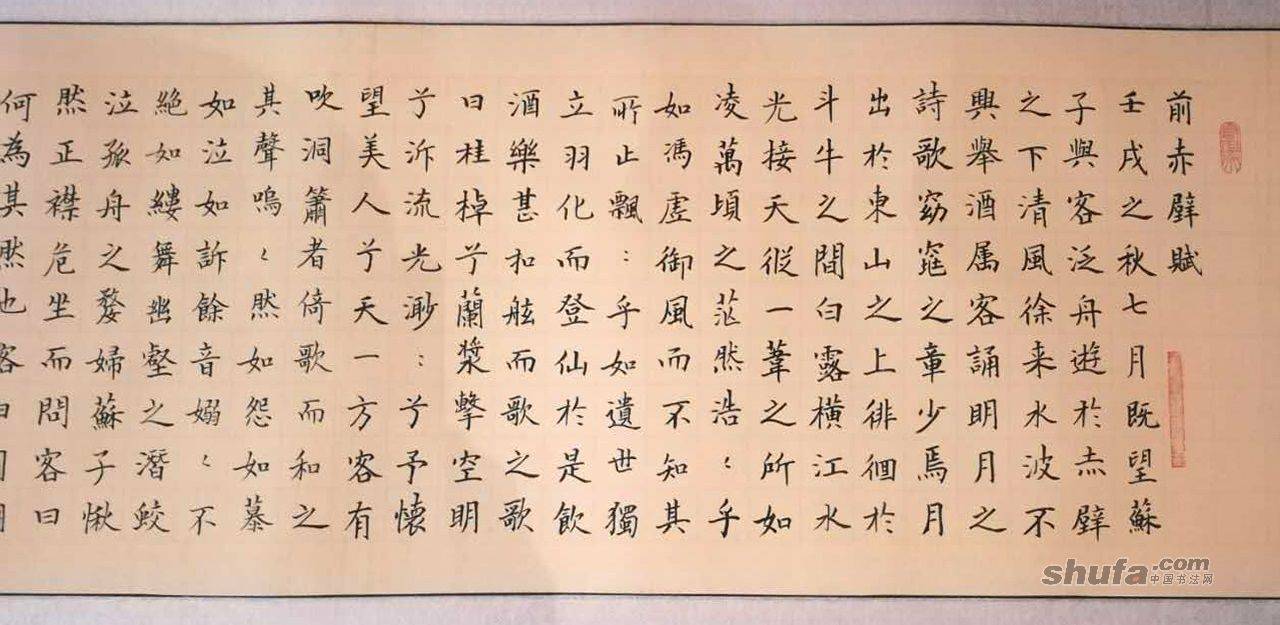 前赤壁賦
壬戌之秋七月既望蘇
子與客泛舟遊於赤壁
之下清風徐来水波不
興舉酒属客誦明月之
詩歌窈窕之章少焉月
出於東山之上徘徊於
斗牛之間白露橫江水
光接天縱一葦之所如
凌萬頃之茫然浩〻乎
如馮虛御風而不知其
所止飄：乎如遺世獨
立羽化而登仙於是飲
酒樂甚和舷而歌之歌
曰桂棹兮蘭槳擊空明
兮泝流光渺：兮予懷
望美人兮天一方客有
吹洞簫者倚歌而和之
其聲嗚〻然如怨如慕
如泣如訴餘音嫋〻不
絕如縷舞幽壑之潛蛟
泣孤舟之嫠婦蘇子愀
然正襟危坐而問客曰
何為其然也客曰
shufa.com
中国书法网